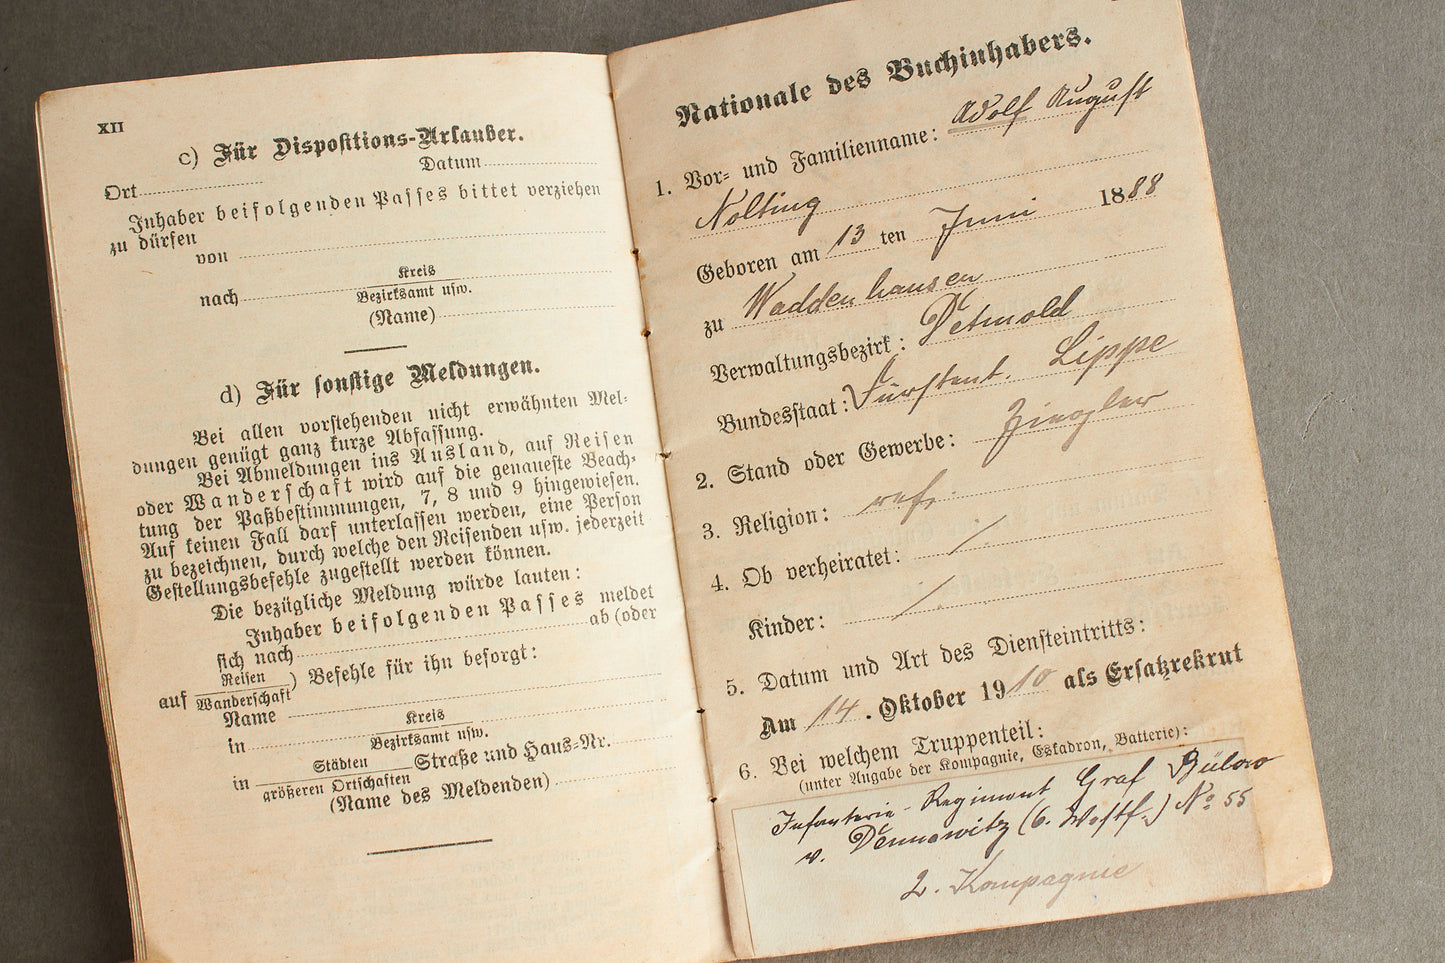 XII
c) Für Dispositions-Urlauber.
Ort Datum
Inhaber beifolgenden Passes bittet verziehen
zu dürfen
von
nach Kreis
Bezirksamt usw.
(Name)
d) Für sonstige Meldungen.
Bei allen vorstehenden nicht erwähnten Mel-
dungen genügt ganz kurze Abfassung.
Bei Abmeldungen ins Ausland, auf Reisen
oder Wanderschaft wird auf die genaueste Beach-
tung der Paßbestimmungen, 7, 8 und 9 hingewiesen.
Auf keinen Fall darf unterlassen werden, eine Person
zu bezeichnen, durch welche den Reisenden usw. jederzeit
Gestellungsbefehle zugestellt werden können.
Die bezügliche Meldung würde lauten:
Inhaber beifolgenden Passes meldet
sich nach ab (oder
auf Reisen
Wanderschaft) Befehle für ihn besorgt:
Name
in Kreis
Bezirksamt usw.
in Städten
größeren Ortschaften Straße und Haus-Nr.
(Name des Meldenden)
Nationale des Buchinhabers.
1. Vor- und Familienname: Adolf August
Nolting
Geboren am 13 ten Juni 1888
zu Waddenhausen
Verwaltungsbezirk: Detmold
Bundesstaat: Fürstent. Lippe
2. Stand oder Gewerbe: Ziegler
3. Religion: ref.
4. Ob verheiratet: /
Kinder: /
5. Datum und Art des Diensteintritts:
Am 14. Oktober 1910 als Ersatzrekrut
6. Bei welchem Truppenteil:
(unter Angabe der Kompagnie, Eskadron, Batterie):
Infanterie-Regiment Graf Bülow
v. Dennewitz (6. Westf.) No 55
2. Kompagnie